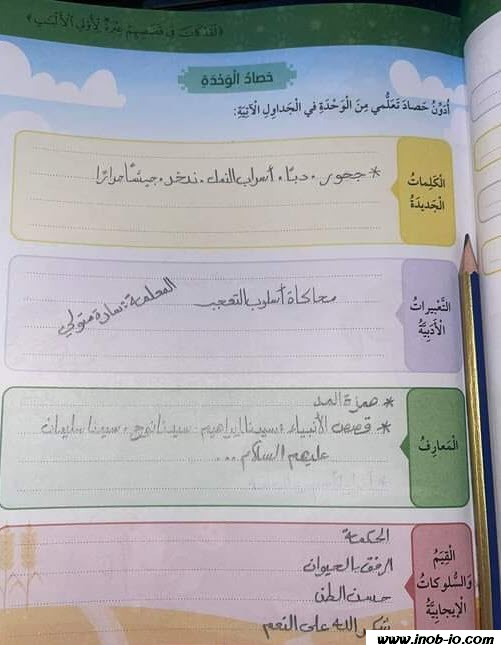 ﴿لَقَدْ كَانَ فِي قَصَصِهِمْ عِبْرَةٌ لِأُولِي الْأَلْبَابِ﴾
حَصادُ الْوَحْدَةِ
أُدَوِّنُ حَصادَ تَعَلُّمي مِنَ الْوَحْدَةِ في الْجَداوِلِ الْآتِيَةِ:
الْكَلِماتُ الْجَديدَةُ
* جحور، دبّا، أسراب النمل، ندخر، جيشًا جرارًا
التَّعْبيراتُ الْأَدَبِيَّةُ
محاكاة أسلوب التعجب
المعلمة: سارة متولي
الْمَعارِفُ
* همزة المد
* قصص الأنبياء، سيدنا إبراهيم، سيدنا نوح، سيدنا سليمان
عليهم السلام ...
الْقِيَمُ وَالسُّلوكاتُ الْإيجابِيَّةُ
الحكمة
الرفق بالحيوان
حسن الظن
شكر الله على النعم
www.inob-io.com